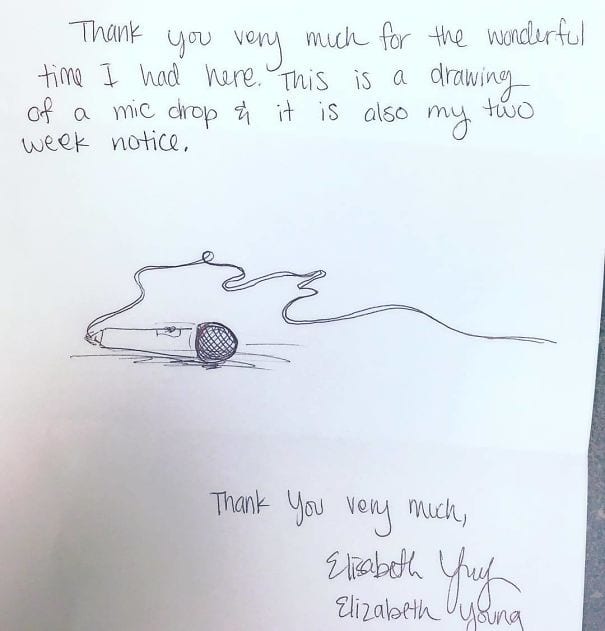 Thank you very much for the wonderful
time I had here. This is a drawing
of a mic drop & it is also my two
week notice.
Thank You very much,
Elizabeth Young
Elizabeth Young